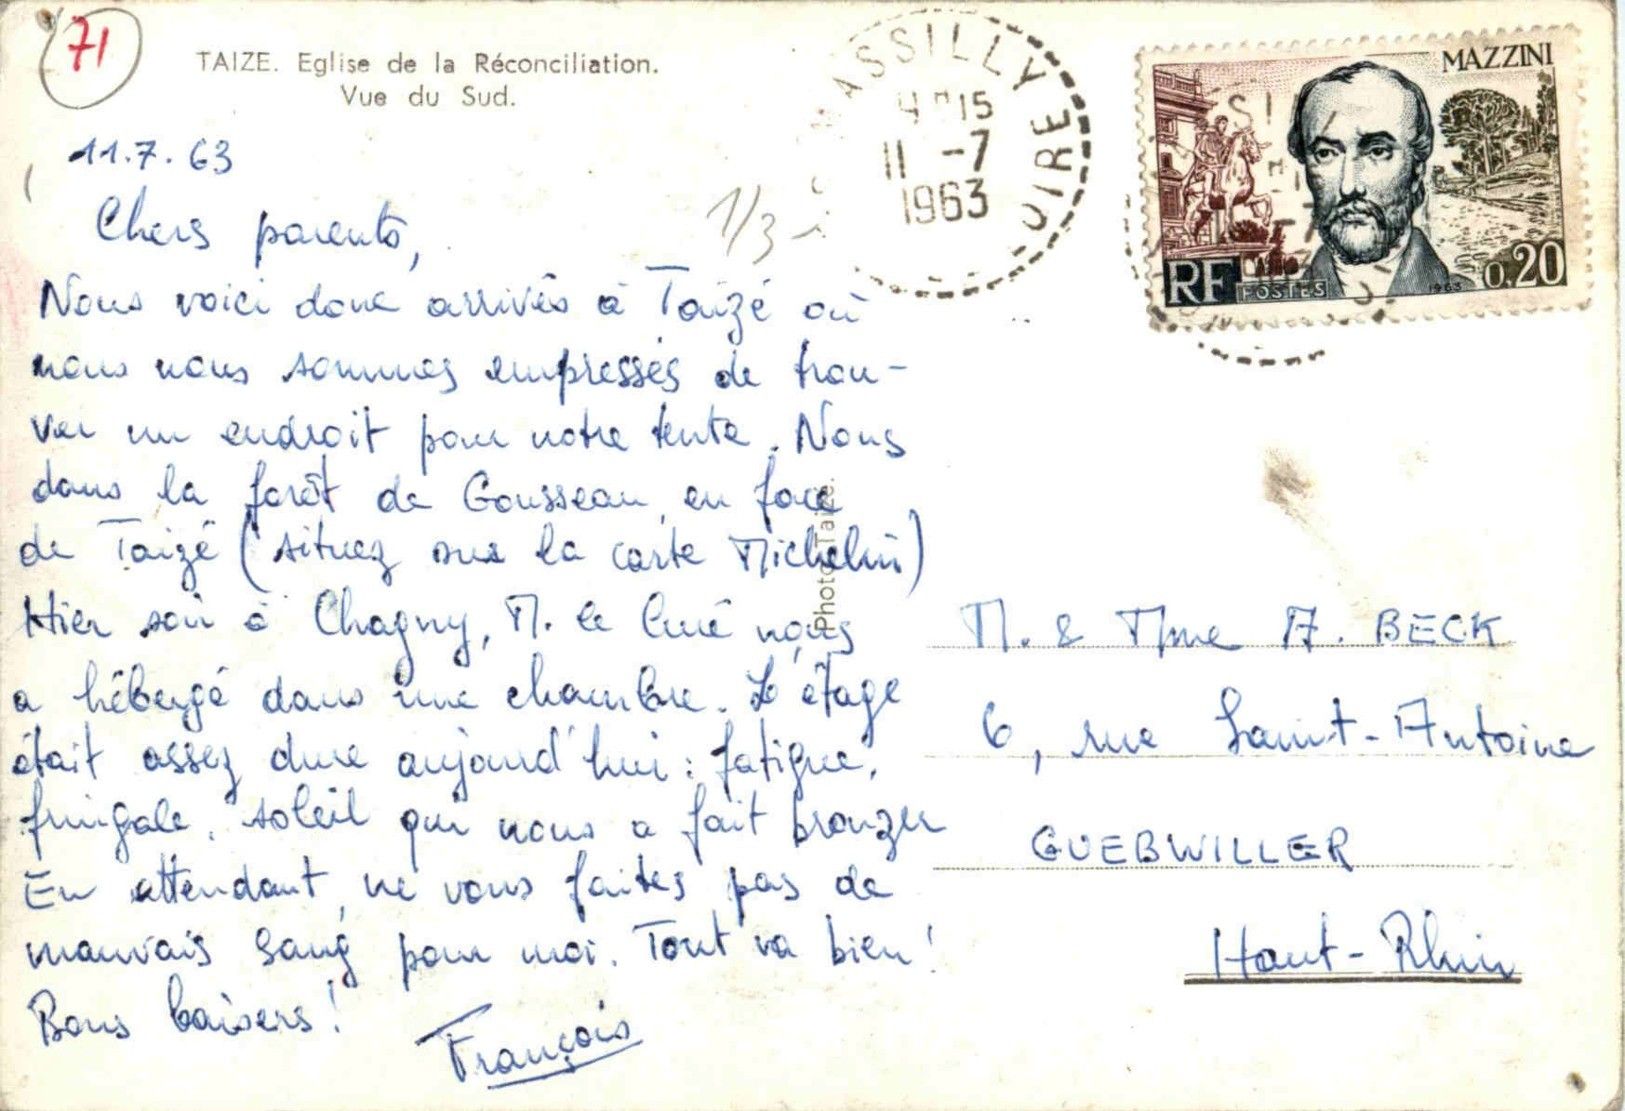 71
TAIZE. Eglise de la Réconciliation.
Vue du Sud.
11.7.63
Chers parents,
Nous voici donc arrivés à Taizé où
nous nous sommes empressés de trou-
ver un endroit pour notre tente. Nous
dans la forêt de Gousseau, en face
de Taizé (situez sur la carte Michelin)
Hier soir à Chagny, M. le Curé nous
a hébergé dans une chambre. L'étage
était assez dure aujourd'hui : fatigue,
fringale, soleil qui nous a fait bronzer
En attendant, ne vous faites pas de
mauvais sang pour moi. Tout va bien !
Bons baisers !
François
Photo Taizé.
1/3
MASSILLY
15
11 -7
1963
OIRE
MAZZINI
RF
POSTES
1963
0,20
M. & Mme A. BECK
6, rue Saint-Antoine
GUEBWILLER
Haut-Rhin